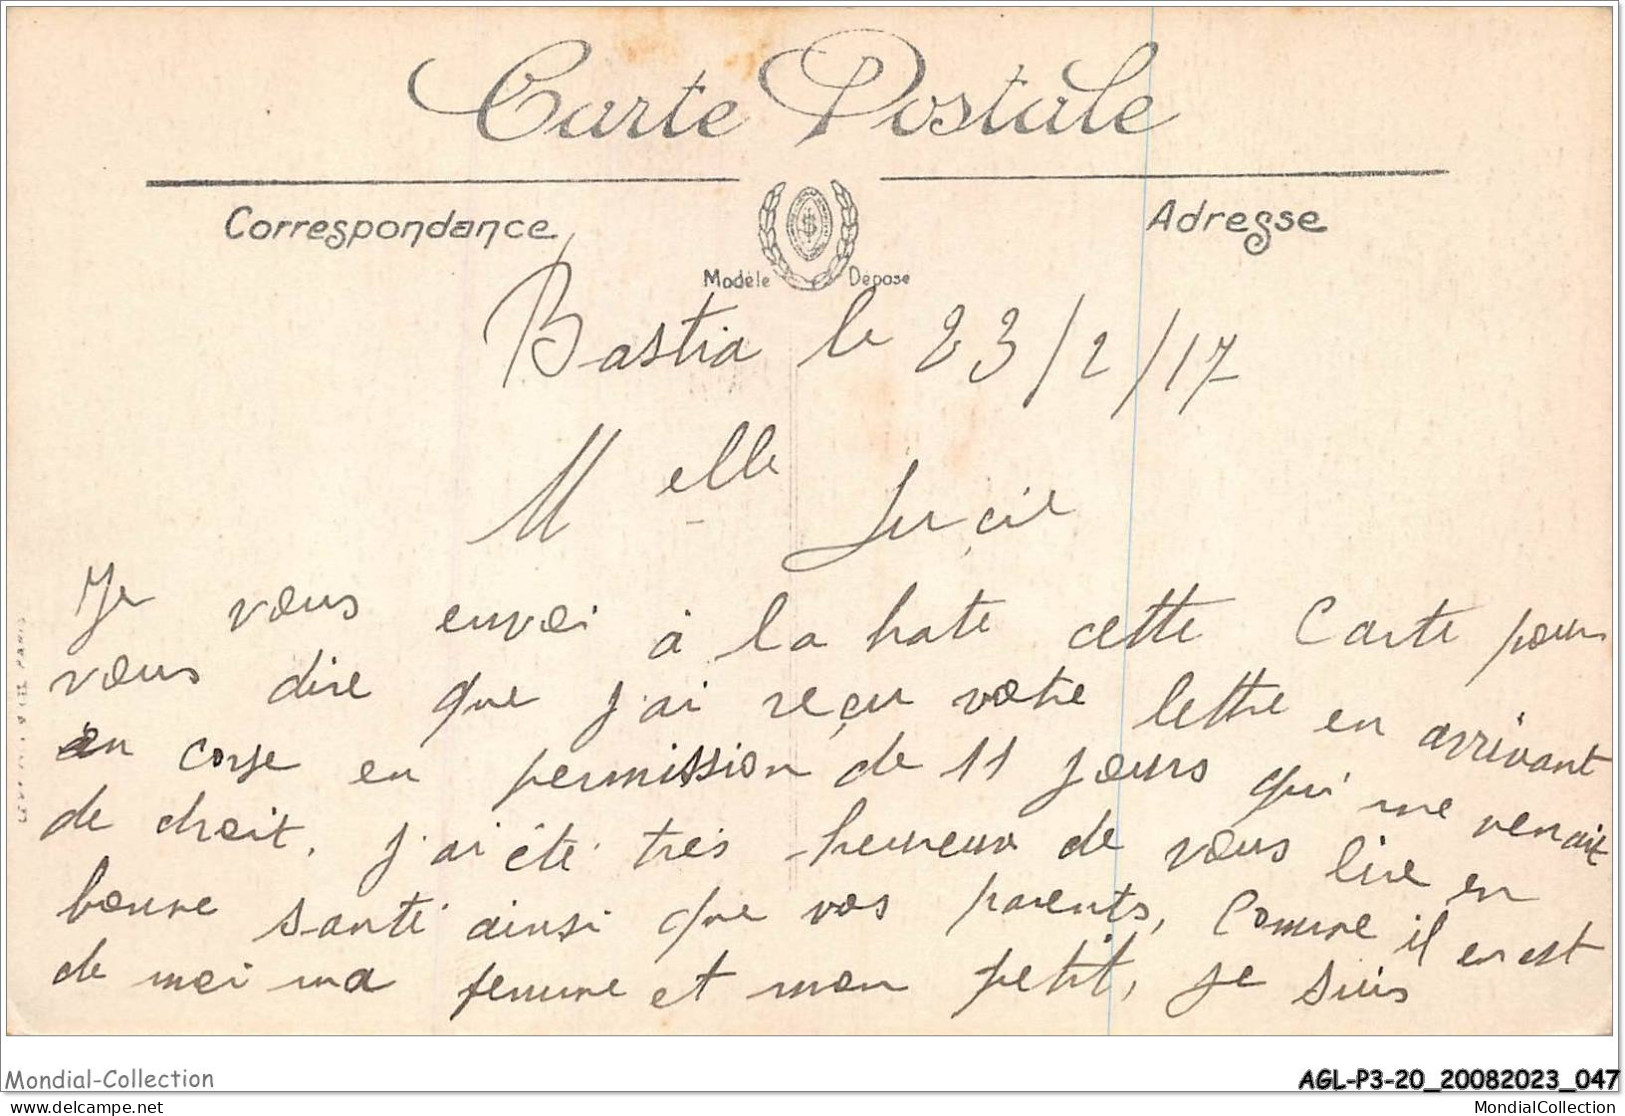 Carte Postale
Correspondance
Adresse
Modèle Déposé
Bastia le 23/2/17
Melle Lucie
Je vous envoi à la hate cette Carte pour
vous dire que j'ai reçu votre lettre en arrivant
en corse en permission de 11 jours qui me venait
de droit. j'ai été très heureux de vous lire en
bonne santé ainsi que vos parents, Comme il en est
de moi ma femme et mon petit, je suis
Mondial-Collection
AGL-P3-20_20082023_047
delcampe.net
MondialCollection